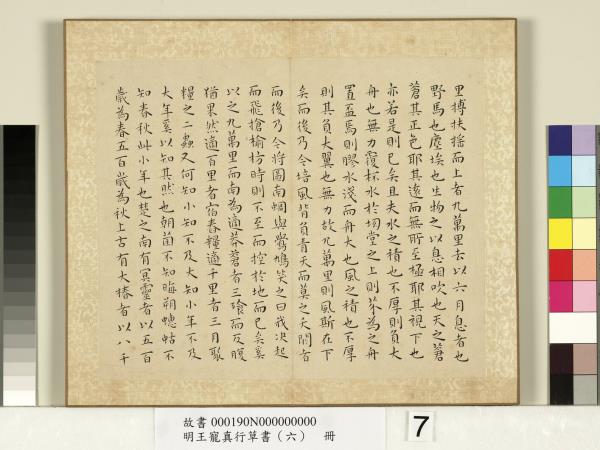 里搏扶搖而上者九萬里去以六月息者也
野馬也塵埃也生物之以息相吹也天之蒼
蒼其正色耶其遠而無所至極耶其視下也
亦若是則已矣且夫水之積也不厚則負大
舟也無力覆杯水於坳堂之上則芥為之舟
置盃焉則膠水淺而舟大也風之積也不厚
則其負大翼也無力故九萬里則風斯在下
矣而後乃今培風背負青天而莫之夭閼者
而後乃今將圖南蜩與鷽鳩笑之曰我決起
而飛搶榆枋時則不至而控於地而已矣奚
以之九萬里而南為適莽蒼者三飡而反腹
猶果然適百里者宿舂糧適千里者三月聚
糧之二蟲又何知小知不及大知小年不及
大年奚以知其然也朝菌不知晦朔蟪蛄不
知春秋此小年也楚之南有冥靈者以五百
歲為春五百歲為秋上古有大椿者以八千
故書 000190N000000000
明王寵真行草書（六） 冊
7